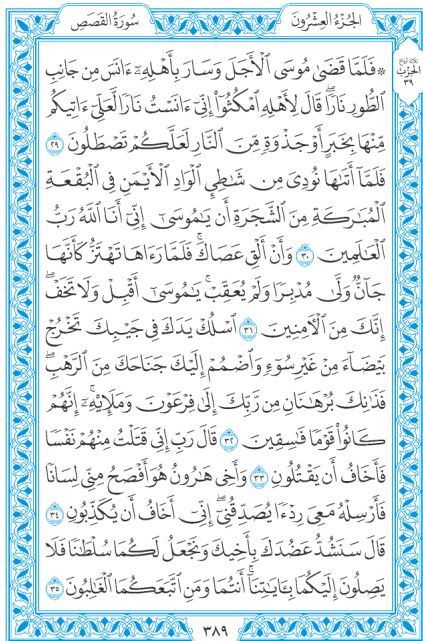 سُورَةُ القَصَصِ الجُزءُ العِشْرُونَ
۞ فَلَمَّا قَضَىٰ مُوسَى ٱلْأَجَلَ وَسَارَ بِأَهْلِهِۦٓ ءَانَسَ مِن جَانِبِ
ٱلطُّورِ نَارًاۖ قَالَ لِأَهْلِهِ ٱمْكُثُوٓا۟ إِنِّىٓ ءَانَسْتُ نَارًا لَّعَلِّىٓ ءَاتِيكُم
مِّنْهَا بِخَبَرٍ أَوْ جَذْوَةٍ مِّنَ ٱلنَّارِ لَعَلَّكُمْ تَصْطَلُونَ ٢٩
فَلَمَّآ أَتَىٰهَا نُودِىَ مِن شَٰطِئِ ٱلْوَادِ ٱلْأَيْمَنِ فِى ٱلْبُقْعَةِ
ٱلْمُبَٰرَكَةِ مِنَ ٱلشَّجَرَةِ أَن يَٰمُوسَىٰٓ إِنِّىٓ أَنَا ٱللَّهُ رَبُّ
ٱلْعَٰلَمِينَ ٣٠ وَأَنْ أَلْقِ عَصَاكَۖ فَلَمَّا رَءَاهَا تَهْتَزُّ كَأَنَّهَا
جَآنٌّ وَلَّىٰ مُدْبِرًا وَلَمْ يُعَقِّبْۚ يَٰمُوسَىٰٓ أَقْبِلْ وَلَا تَخَفْۖ
إِنَّكَ مِنَ ٱلْءَامِنِينَ ٣١ ٱسْلُكْ يَدَكَ فِى جَيْبِكَ تَخْرُجْ
بَيْضَآءَ مِنْ غَيْرِ سُوٓءٍ وَٱضْمُمْ إِلَيْكَ جَنَاحَكَ مِنَ ٱلرَّهْبِۖ
فَذَٰنِكَ بُرْهَٰنَانِ مِن رَّبِّكَ إِلَىٰ فِرْعَوْنَ وَمَلَإِي۟هِۦٓۚ إِنَّهُمْ
كَانُوا۟ قَوْمًا فَٰسِقِينَ ٣٢ قَالَ رَبِّ إِنِّى قَتَلْتُ مِنْهُمْ نَفْسًا
فَأَخَافُ أَن يَقْتُلُونِ ٣٣ وَأَخِى هَٰرُونُ هُوَ أَفْصَحُ مِنِّى لِسَانًا
فَأَرْسِلْهُ مَعِىَ رِدْءًا يُصَدِّقُنِىٓۖ إِنِّىٓ أَخَافُ أَن يُكَذِّبُونِ ٣٤
قَالَ سَنَشُدُّ عَضُدَكَ بِأَخِيكَ وَنَجْعَلُ لَكُمَا سُلْطَٰنًا فَلَا
يَصِلُونَ إِلَيْكُمَا بِـَٔايَٰتِنَآۚ أَنتُمَا وَمَنِ ٱتَّبَعَكُمَا ٱلْغَٰلِبُونَ ٣٥
الحِزْب
٣٩
٣٨٩